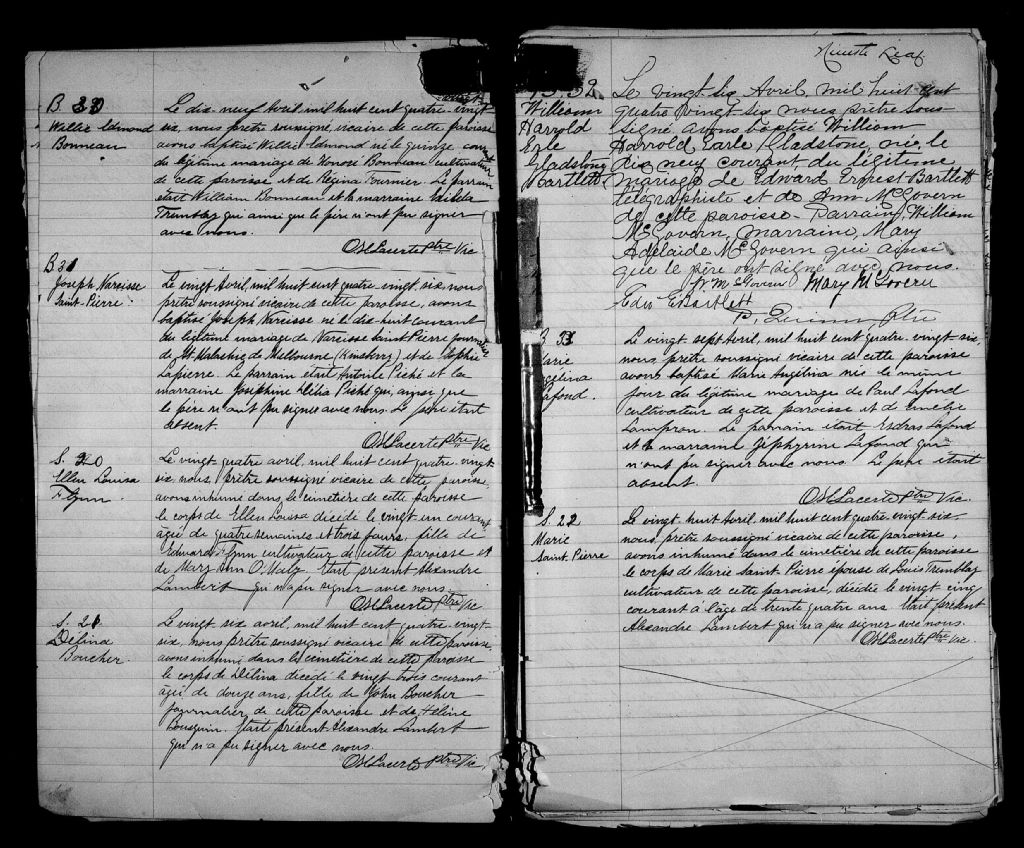 B. 30
Willie Edmond
Bonneau
Le dix-neuf Avril mil huit cent quatre-vingt
six, nous prêtre soussigné, vicaire de cette paroisse
avons baptisé Willie Edmond né le quinze cour.
du légitime mariage de Honoré Bonneau cultivateur
de cette paroisse et de Régina Fournier. Le parrain
était William Bonneau et la marraine
Tremblay qui ainsi que le père n'ont pu signer
avec nous.
OSLacerte Ptre Vic
B. 31
Joseph Narcisse
Saint-Pierre
Le vingt Avril, mil huit cent quatre vingt six nous
prêtre soussigné vicaire de cette paroisse, avons
baptisé Joseph Narcisse né le dix-huit courant
du légitime mariage de Narcisse Saint Pierre journalier
de St Malachie de Melbourne (Kinsbery) et de Sophie
Lapierre. Le parrain était Antoine Piché et la
marraine Joséphine Délia Piché qui, ainsi que
le père n'ont pu signer avec nous. Le père était
absent.
OSLacerte Ptre Vic
S. 20
Ellen Louisa
Flynn
Le vingt quatre avril, mil huit cent quatre-vingt-
six, nous, prêtre soussigné vicaire de cette paroisse,
avons inhumé dans le cimetière de cette paroisse
le corps de Ellen Louisa décédé le vingt un courant
âgée de quatre semaines et trois jours, fille de
Edward Flynn cultivateur de cette paroisse et
de Mary Ann O'Maly. Etait présent Alexandre
Lambert qui n'a pu signer avec nous.
OSLacerte Ptre Vic
S. 21
Délina
Boucher.
Le vingt six avril, mil huit cent quatre vingt-
six, nous prêtre soussigné vicaire de cette paroisse,
avons inhumé dans le cimetière de cette paroisse
le corps de Délina décédé le vingt trois courant
âgée de douze ans, fille de John Boucher
journalier de cette paroisse et de Hélène
Bousquin. Etait présent Alexandre Lambert
qui n'a pu signer avec nous.
OSLacerte Ptre Vic.
Leaf
B. 32
William
Harrold
Erle
Gladstone
Bartlett
Le vingt six Avril, mil huit cent
quatre vingt-six nous prêtre sous-
signé avons baptisé William
Harrold Earle Gladstone, né le
dix neuf courant du légitime
mariage de Edward Ernest Bartlett
télégraphiste et de Ann McGovern
de cette paroisse - Parrain, William
McGovern, marraine, Mary
Adelaide McGovern qui ainsi
que le père ont signé avec nous.
Wm McGovern Mary McGovern
Edw EBartlett
P. Quinn Ptre
B. 33
Marie
Angélina
Lafond.
Le vingt sept Avril, mil huit cent quatre-vingt six,
nous, prêtre soussigné vicaire de cette paroisse
avons baptisé Marie Angélina née le même
jour du légitime mariage de Paul Lafond
cultivateur de cette paroisse et de Emélie
Lampron. Le parrain était Esdras Lafond
et la marraine Zéphyrine Lafond qui
n'ont pu signer avec nous. Le père était
absent.
OSLacerte Ptre Vic.
S. 22
Marie
Saint-Pierre
Le vingt-huit Avril, mil huit cent quatre-vingt six,
nous, prêtre soussigné vicaire de cette paroisse,
avons inhumé dans le cimetière de cette paroisse
le corps de Marie Saint Pierre épouse de Louis Tremblay
cultivateur de cette paroisse, décédée le vingt-cinq
courant à l'âge de trente quatre ans. Etait présent
Alexandre Lambert qui n'a pu signer avec nous.
OSLacerte Ptre Vic